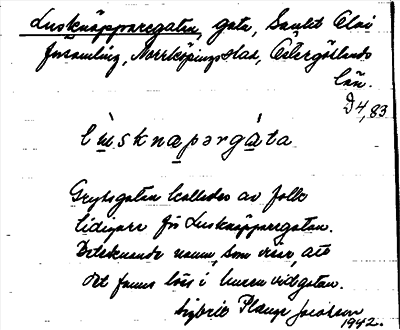 Lusknäpparegatan, gata, Sankt Olai
församling, Norrköpings stad, Östergötlands
län.
D 4, 83
lusknapərgata
Grytsgatan kallades av folk
tidigare för Lusknäpparegatan.
Betecknande namn, som visar, att
det fanns löss i husen vid gatan.
Ingbrit Plange Jacobson
1942.